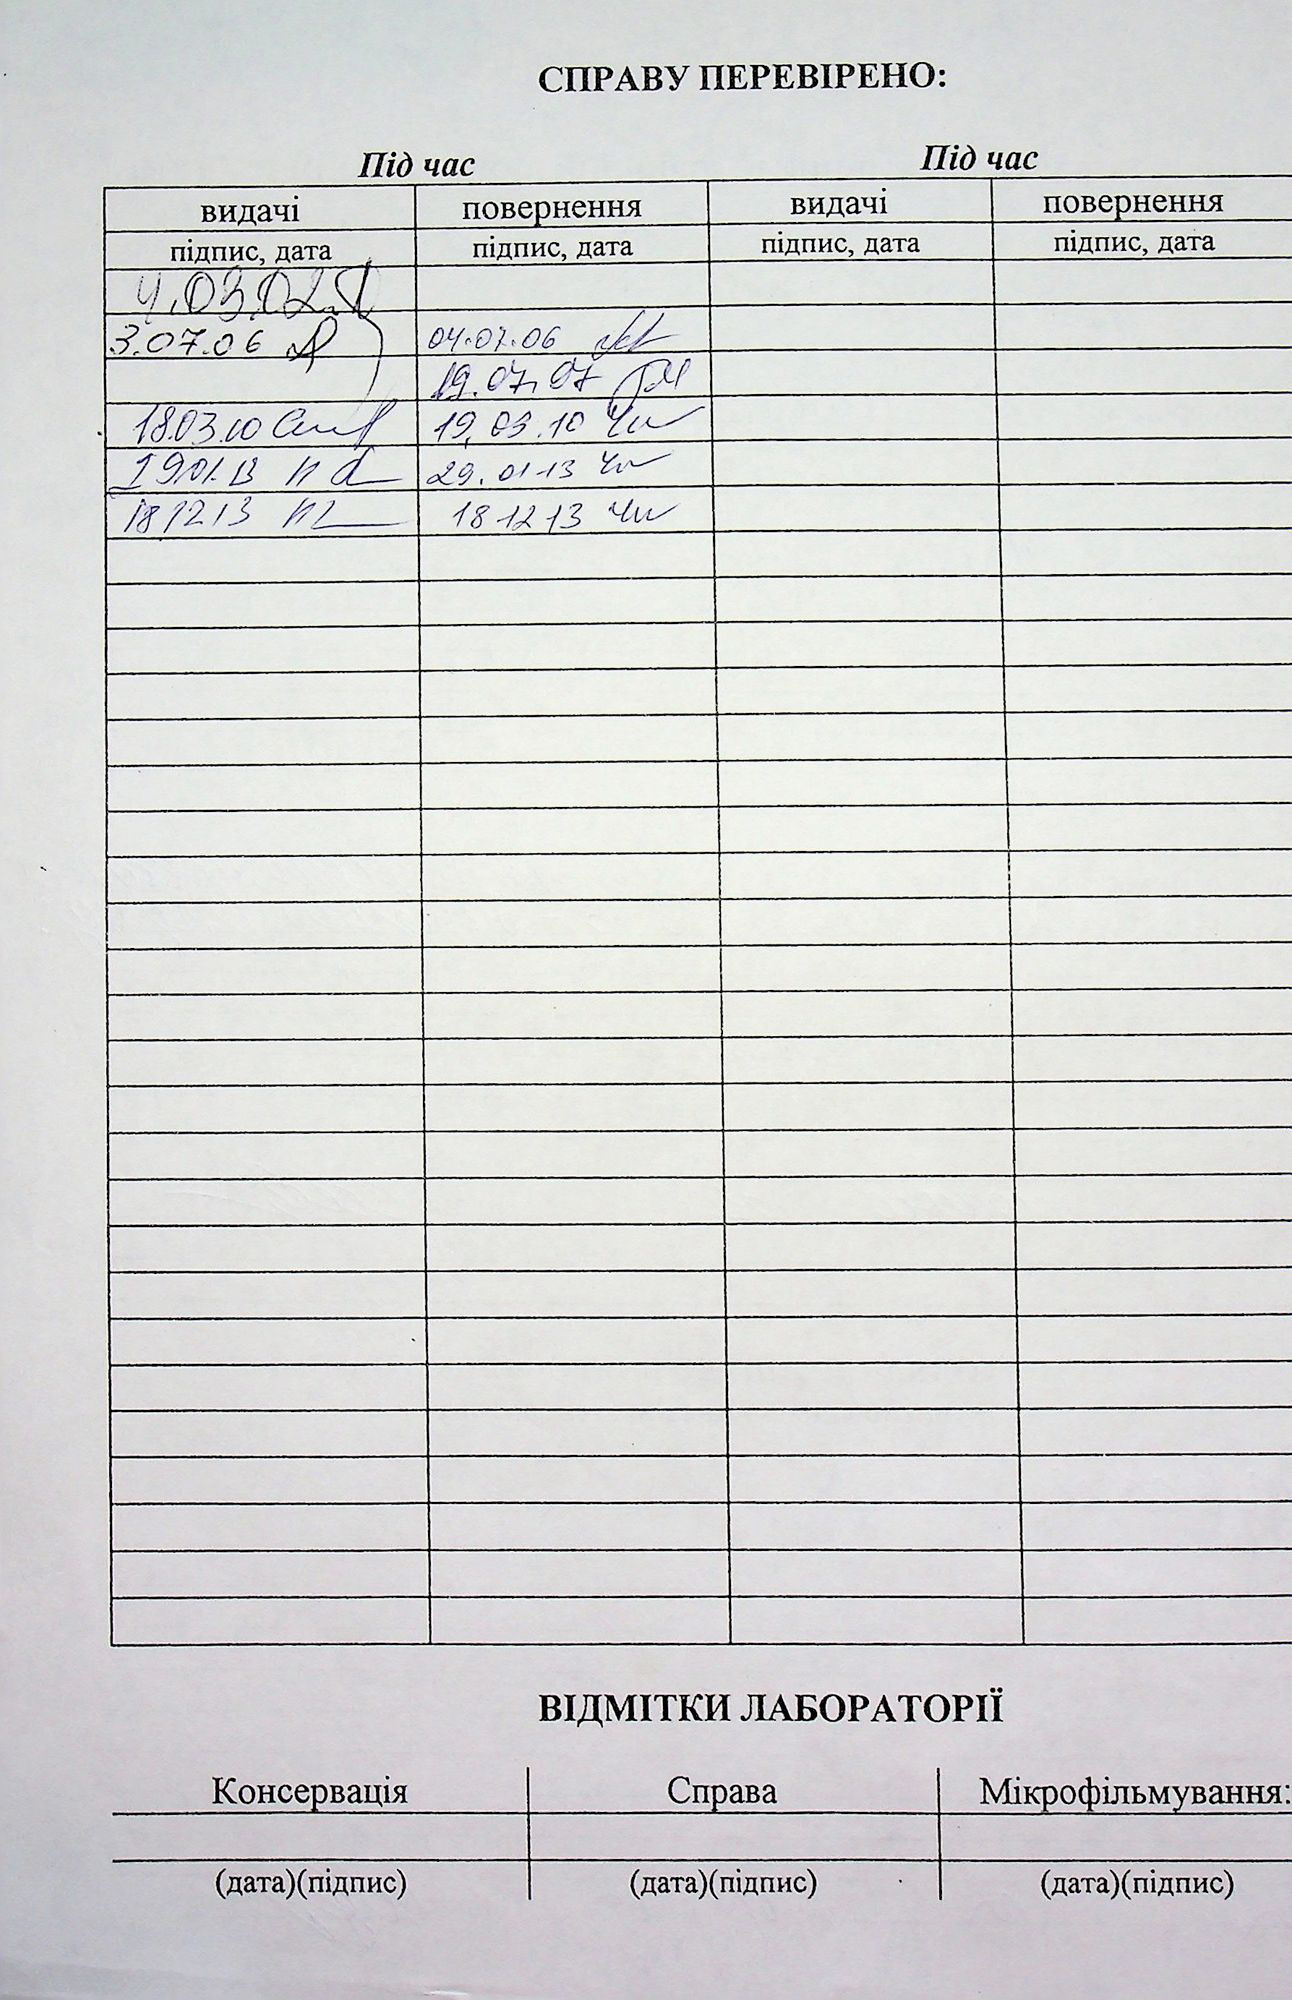 СПРАВУ ПЕРЕВІРЕНО:
Під час Під час
видачі повернення видачі повернення
підпис, дата підпис, дата підпис, дата підпис, дата
4.03.02
3.07.06 04.07.06
19.07.07
18.03.10 19.03.10
29.01.13
18 12 13 18 12 13
ВІДМІТКИ ЛАБОРАТОРІЇ
Консервація Справа Мікрофільмування:
(дата)(підпис) (дата)(підпис) (дата)(підпис)